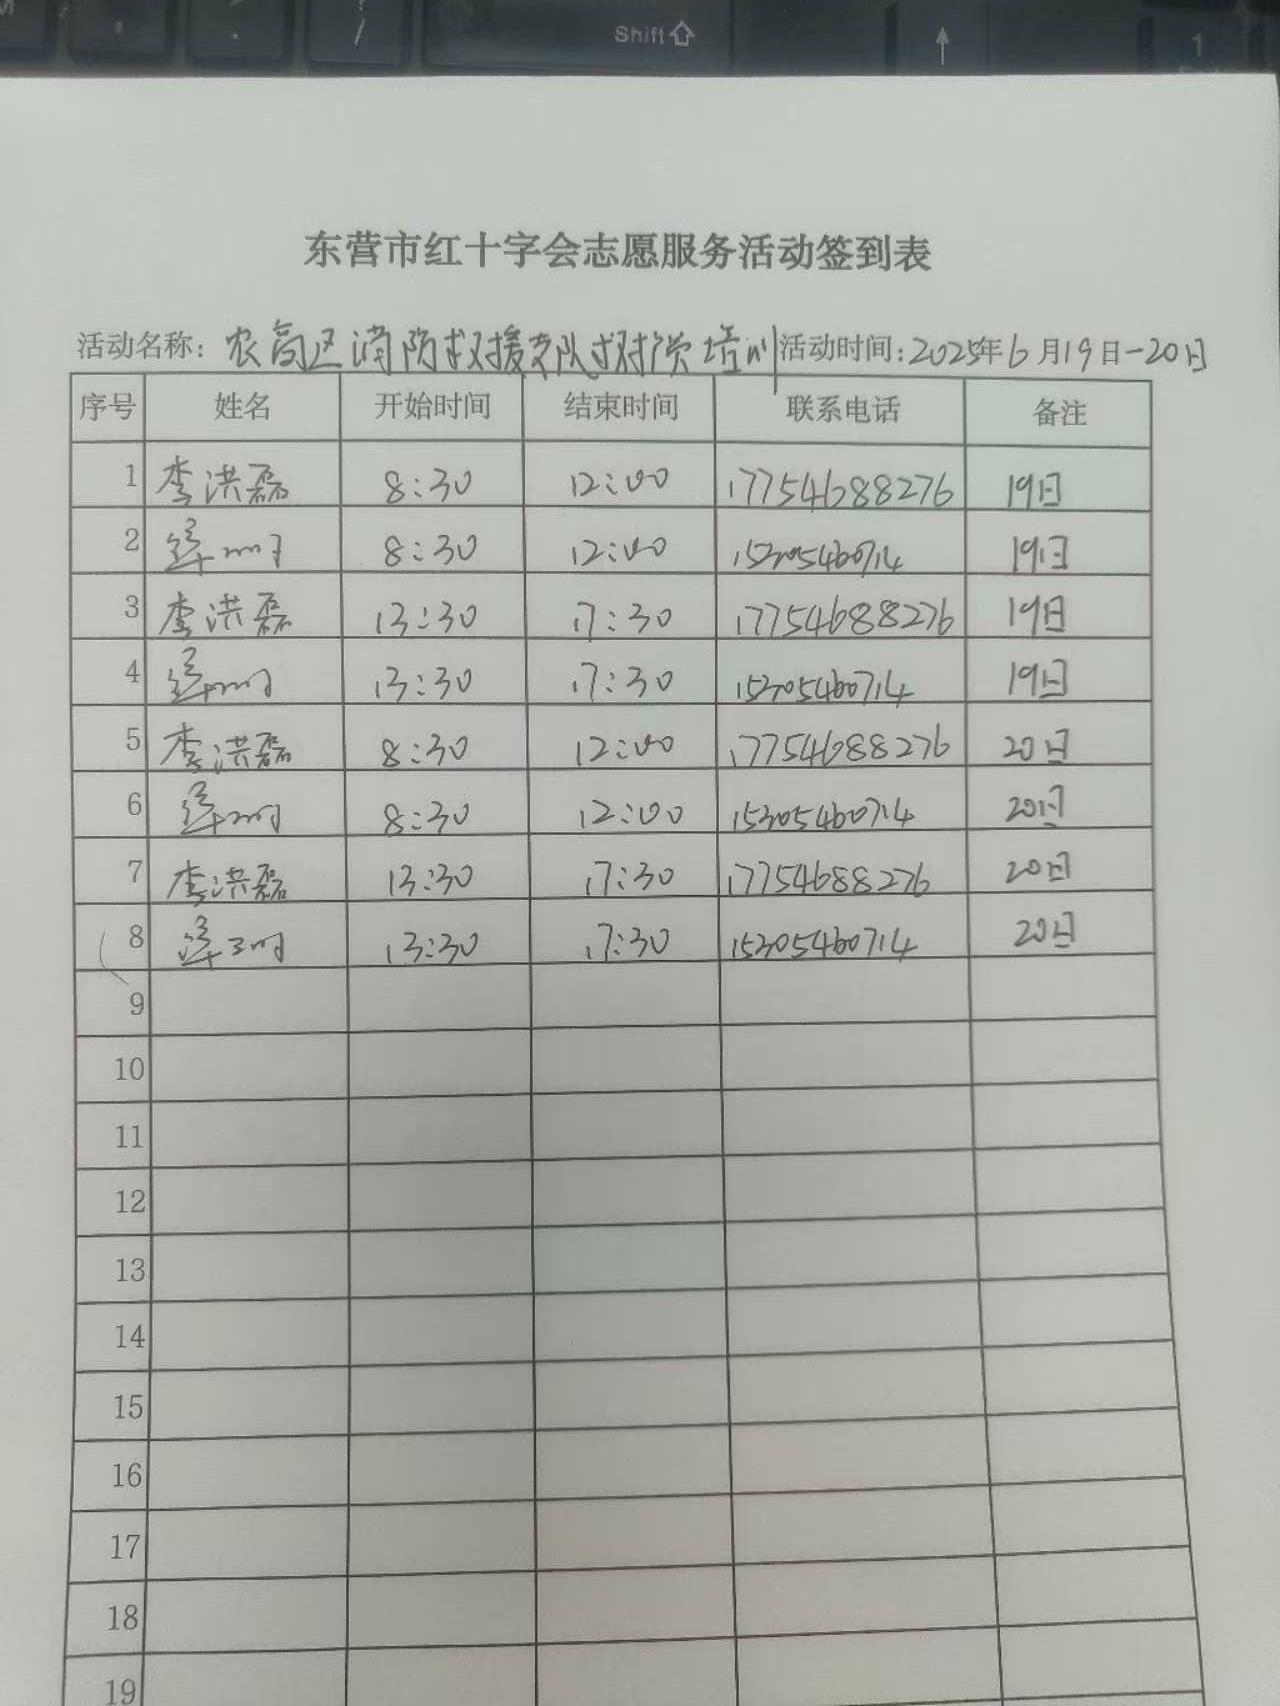 Shift
1
东营市红十字会志愿服务活动签到表
活动名称: 农高区消防救援支队救护员培训 活动时间: 2025年6月19日-20日
序号 姓名 开始时间 结束时间 联系电话 备注
1 李洪磊 8:30 12:00 17754688276 19日
2 8:30 12:00 15305460714 19日
3 李洪磊 13:30 17:30 17754688276 19日
4 13:30 17:30 15305460714 19日
5 李洪磊 8:30 12:00 17754688276 20日
6 8:30 12:00 15305460714 20日
7 李洪磊 13:30 17:30 17754688276 20日
8 13:30 17:30 15305460714 20日
9
10
11
12
13
14
15
16
17
18
19